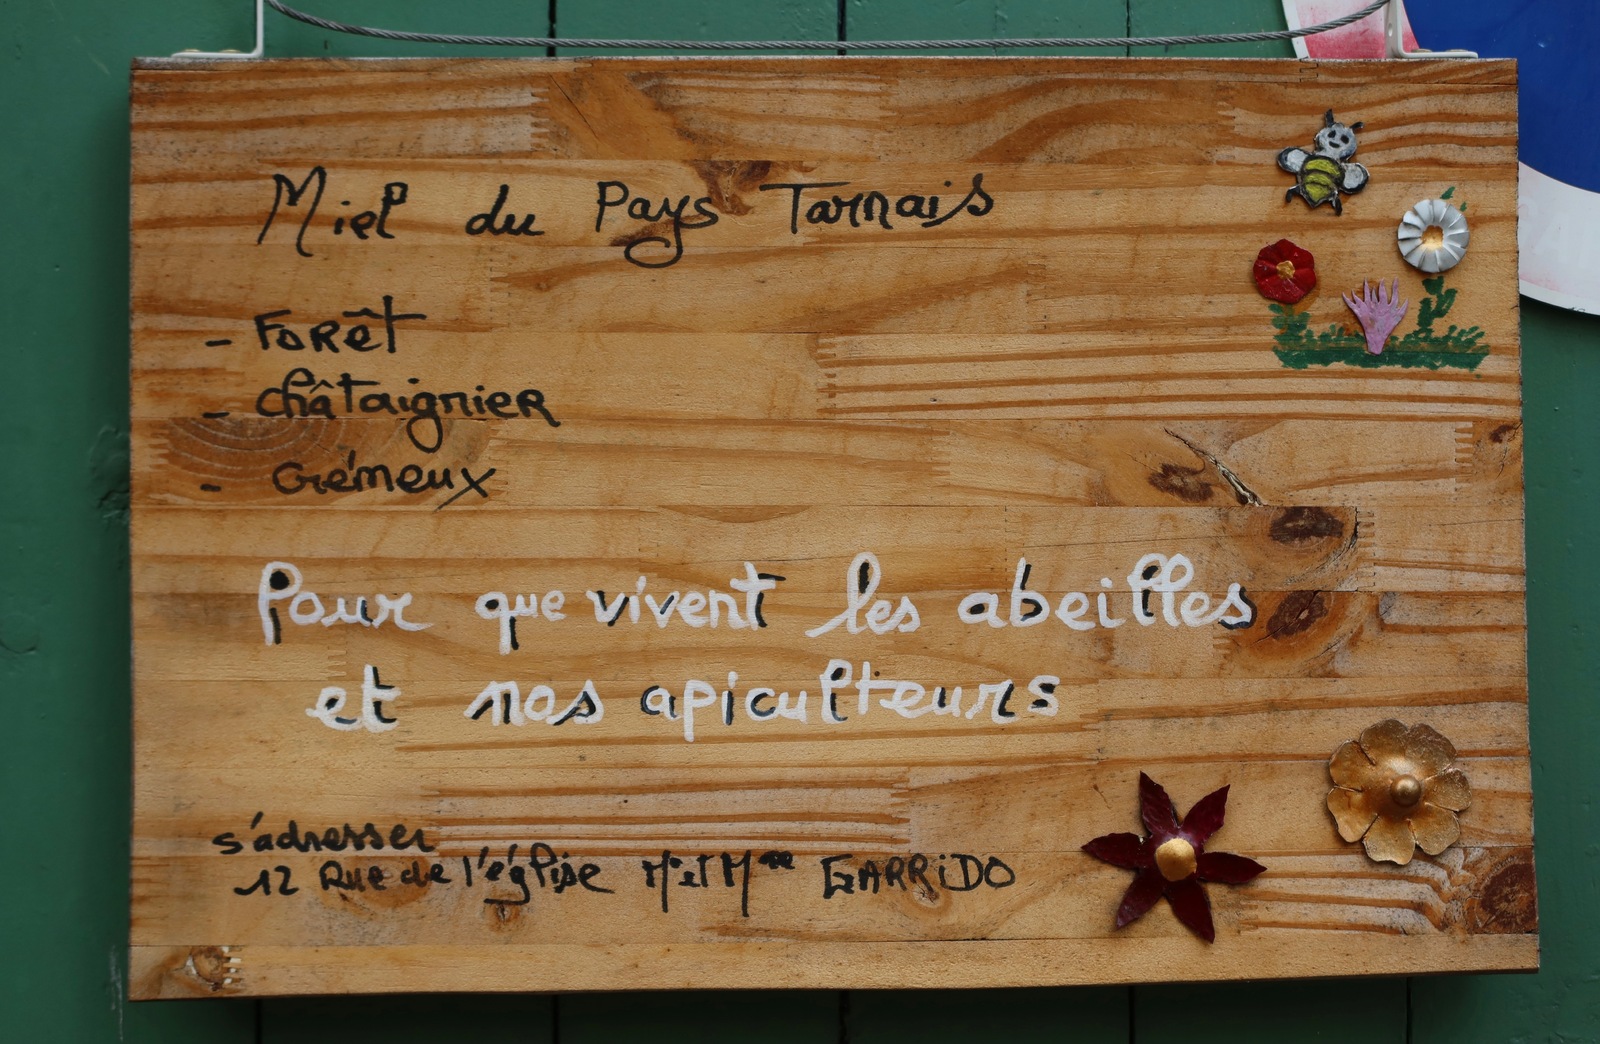 Miel du Pays Tarnais
- Forêt
- châtaignier
- Crémeux
Pour que vivent les abeilles
et nos apiculteurs
s'adresser
12 Rue de l'église Mr et Mme GARRiDO